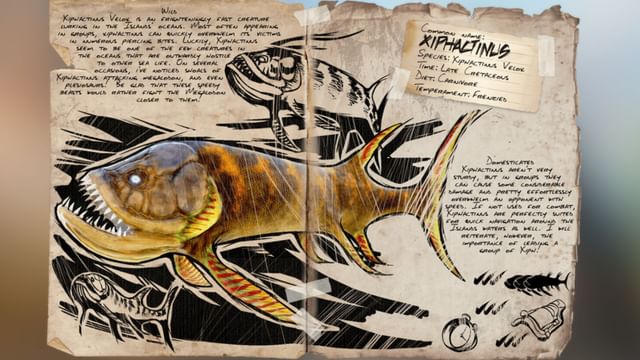 Wild
Xiphactinus Velox is an frighteningly fast creature
lurking in the Islands' oceans. Most often appearing
in groups, xiphactinus can quickly overwhelm its victims
in numerous piercing bites. Luckily, Xiphactinus
seem to be one of the few creatures in
the oceans that are outwardly hostile
to other sea life. On several
occasions, I've noticed shoals of
Xiphactinus attacking megalodon, and even
plesiosaurs! Be glad that these speedy
beasts would rather fight the Megalodon
closer to them.
Common name:
Xiphactinus
Species: Xiphactinus Velox
Time: Late Cretaceous
Diet: Carnivore
Temperament: Frenzied
Domesticated
Xiphactinus aren't very
sturdy, but in groups they
can cause some considerable
damage and pretty effortlessly
overwhelm an opponent with
speed. If not used for combat,
Xiphactinus are perfectly suited
for quick navigation around the
Islands waters as well. I will
reiterate, however, the
importance of leading a
group of Xiph!